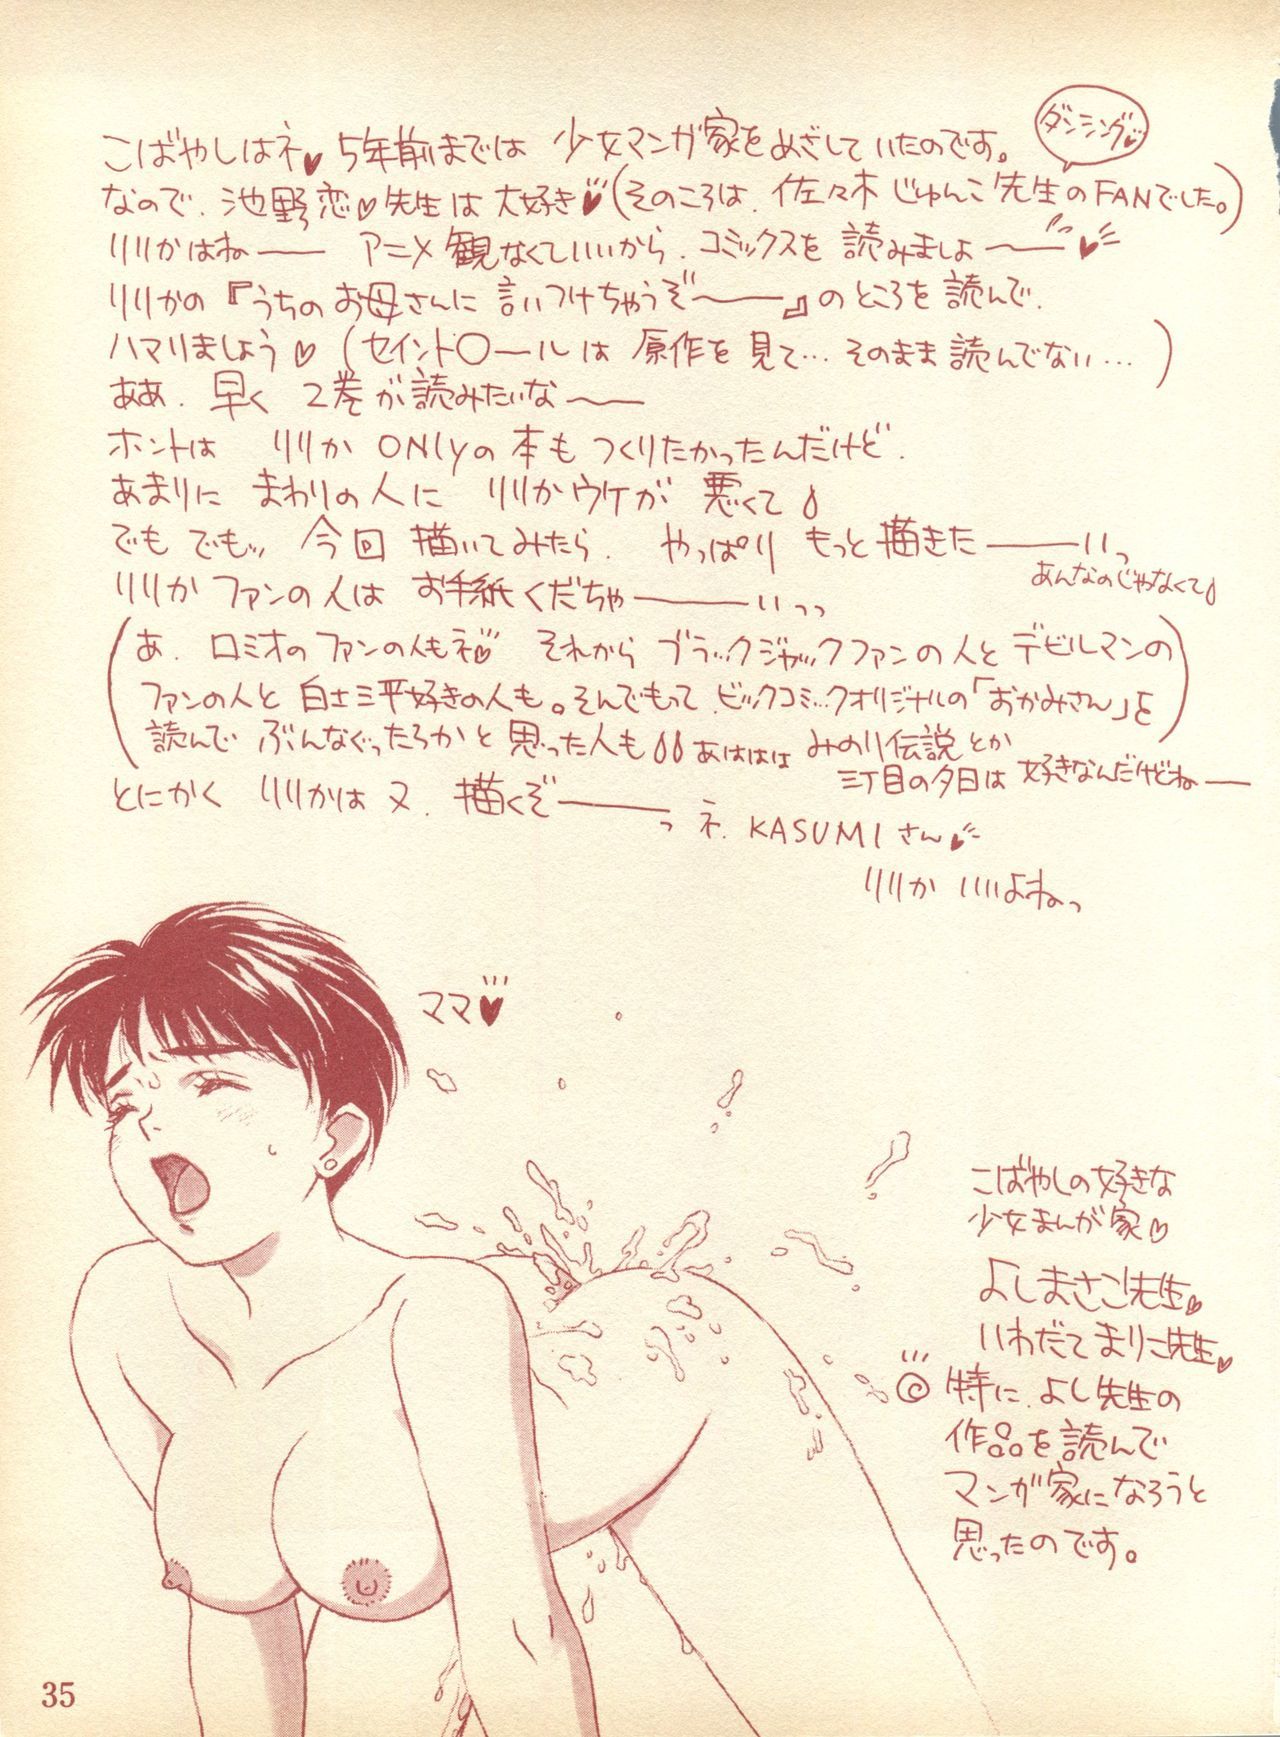 こばやしはネ♥ 5年前までは 少女マンガ家をめざしていたのです。
ダンシング♥
なので、池野恋♡先生は大好き♥(そのころは、佐々木じゅんこ先生のFANでした。)
リリかはねー アニメ観なくていいから、コミックスを 読みましょー♥
リリかの『うちのお母さんに言いつけちゃうぞー』のところを読んで、
ハマりましょう♡(セイント〇ールは 原作を見て…そのまま読んでない…)
ああ、早く 2巻が読みたいなー
ホントは リリか ONLYの本もつくりたかったんだけど、
あまりに まわりの人に リリかウケが 悪くて
でもでもッ 今回 描いてみたら、やっぱり もっと描きたーいっ
あんなのじゃなくて
リリかファンの人は お手紙くだちゃーいっっ
(あ、ロミオのファンの人もネ♡ それから ブラックジャックファンの人と デビルマンの
ファンの人と 白土三平好きの人も。そんでもって、ビックコミックオリジナルの「おかみさん」を
読んで ぶんなぐったろかと 思った人も あははは みのり伝説とか
三丁目の夕日は 好きなんだけどねー)
とにかく リリかは 又、描くぞーっ ネ、KASUMIさん♥
リリか いいよねっ
ママ♥
こばやしの好きな
少女まんが家♡
よしまさこ先生♡
いわだてまりこ先生♡
特に、よし先生の
作品を読んで
マンガ家になろうと
思ったのです。
35